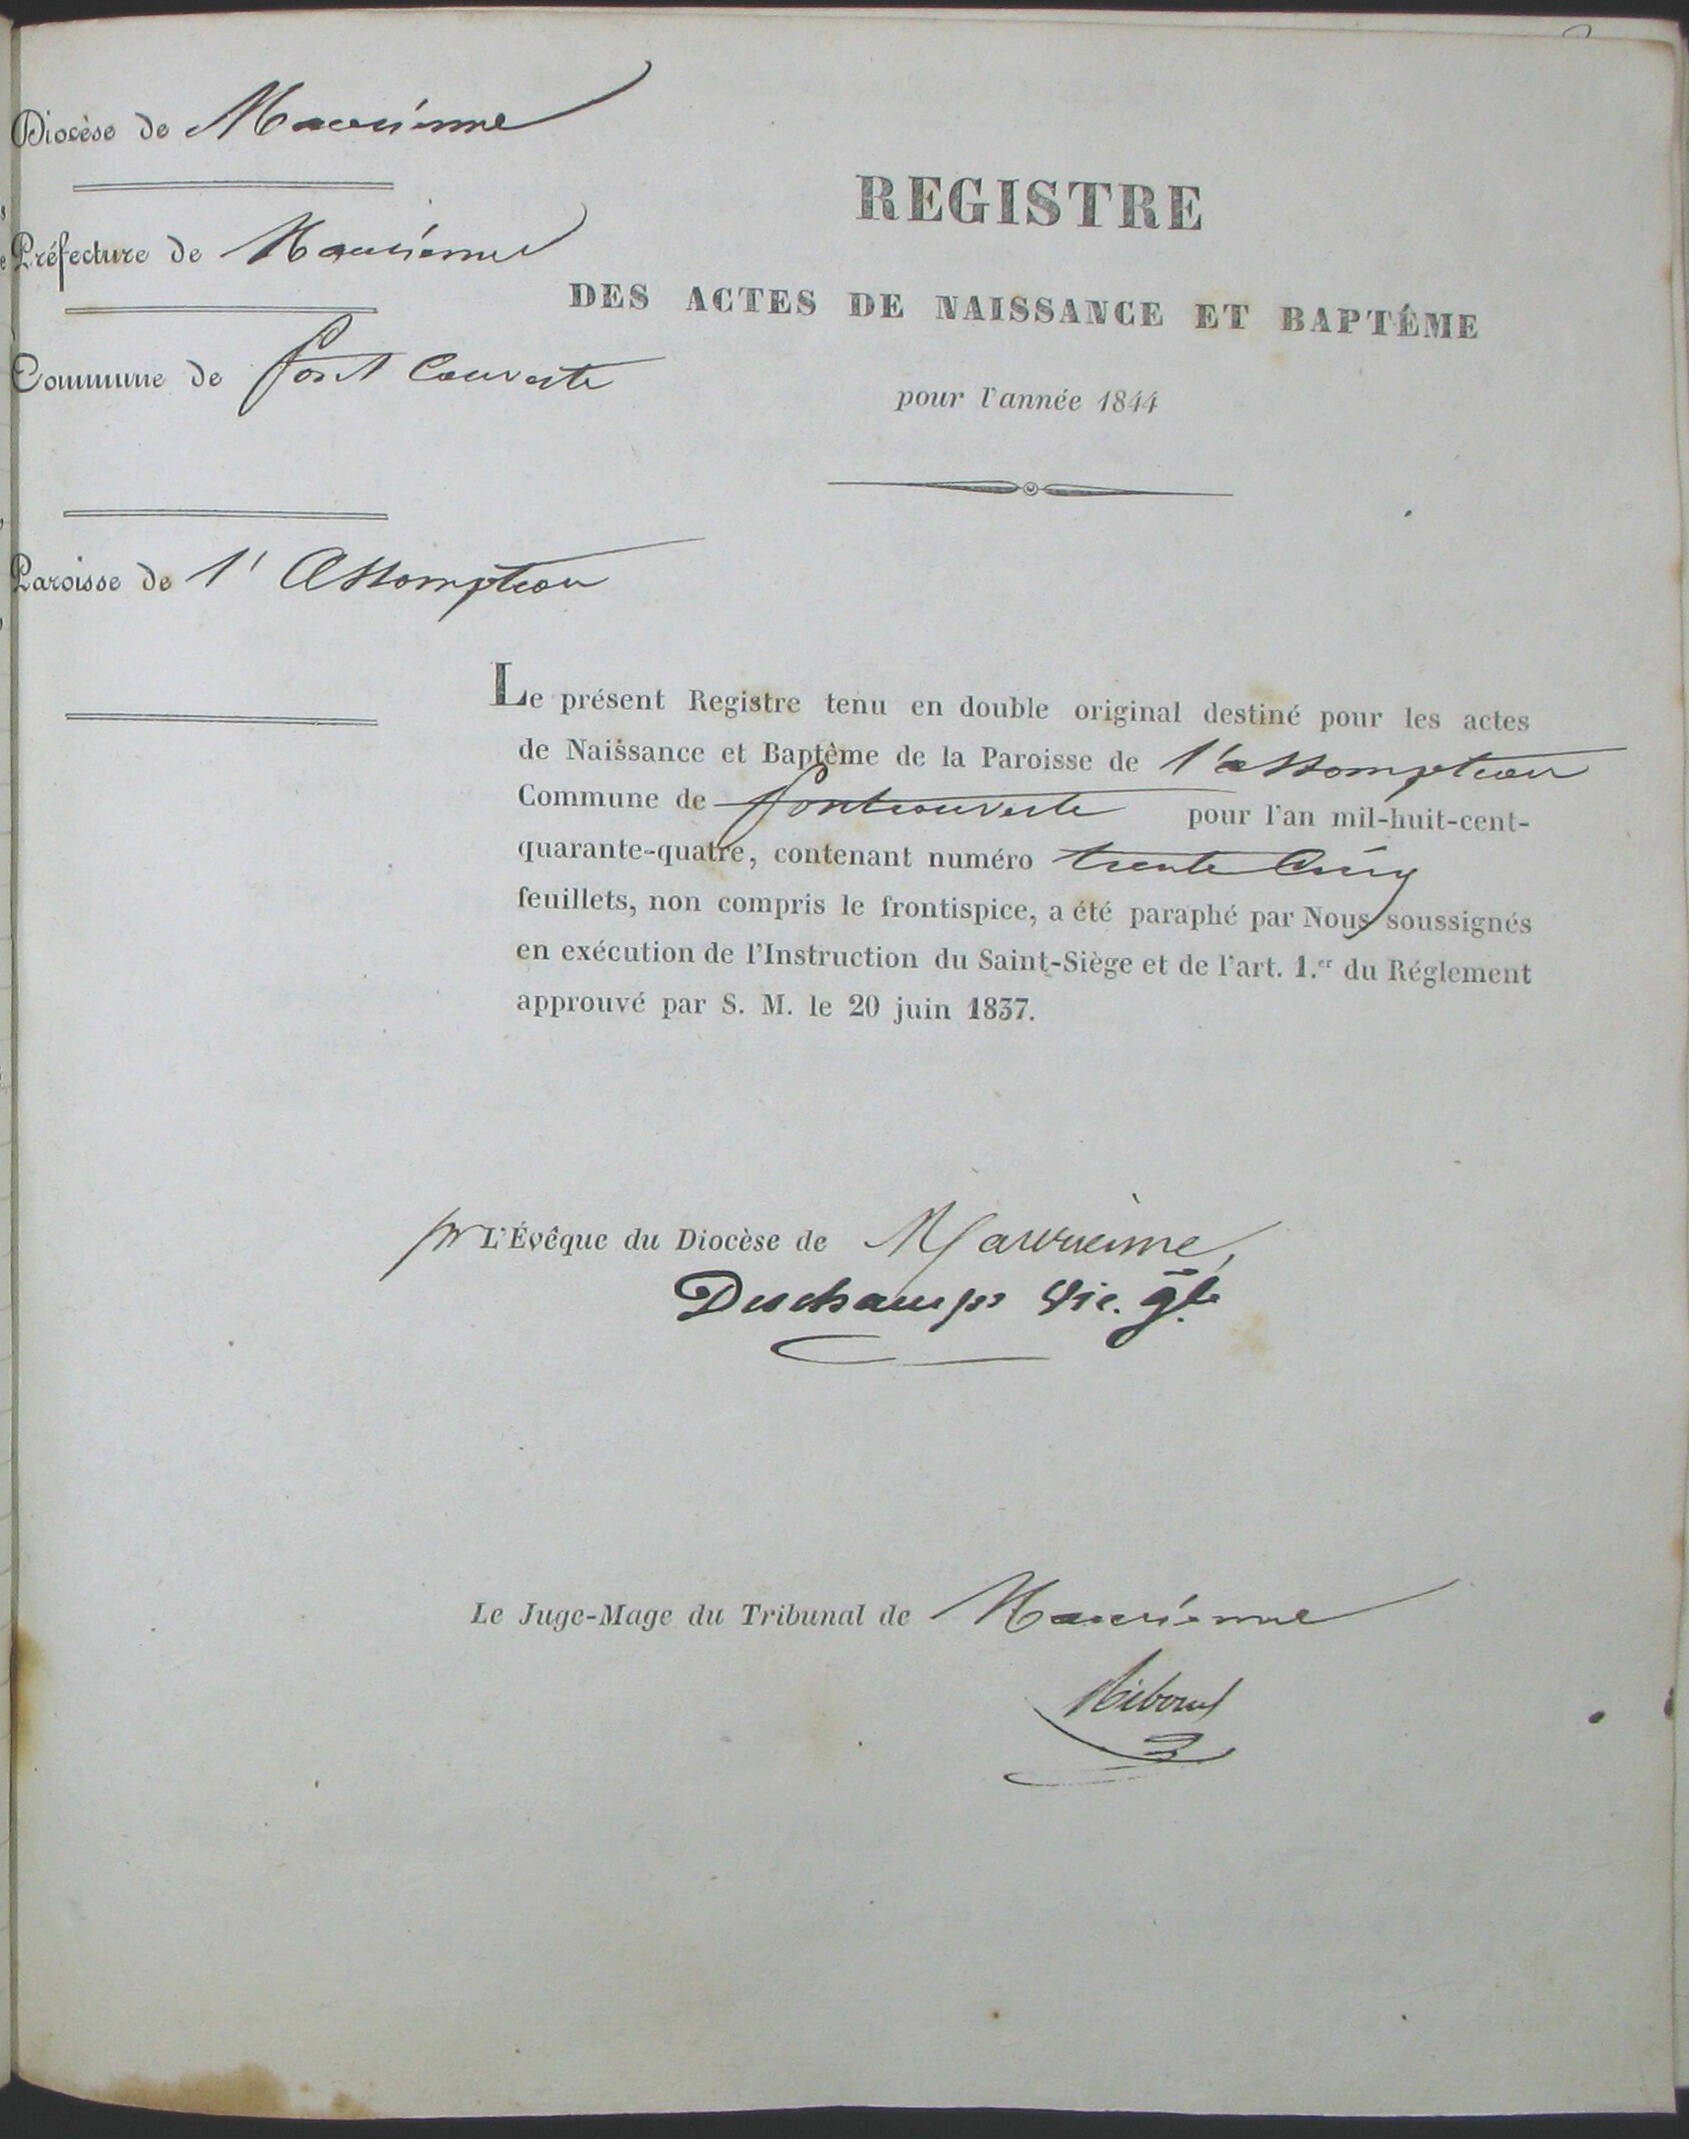 Diocèse de Maurienne
Préfecture de Maurienne
Commune de font Couverte
Paroisse de l'Assomption
REGISTRE
DES ACTES DE NAISSANCE ET BAPTÉME
pour l'année 1844
Le présent Registre tenu en double original destiné pour les actes
de Naissance et Baptême de la Paroisse de l'assomption
Commune de fontcouverte pour l'an mil-huit-cent-
quarante-quatre, contenant numéro trente Cinq
feuillets, non compris le frontispice, a été paraphé par Nous soussignés
en exécution de l'Instruction du Saint-Siège et de l'art. 1.er du Réglement
approuvé par S. M. le 20 juin 1837.
pr L'Évêque du Diocèse de Maurienne,
Deschamps Vic. gl.
Le Juge-Mage du Tribunal de Maurienne